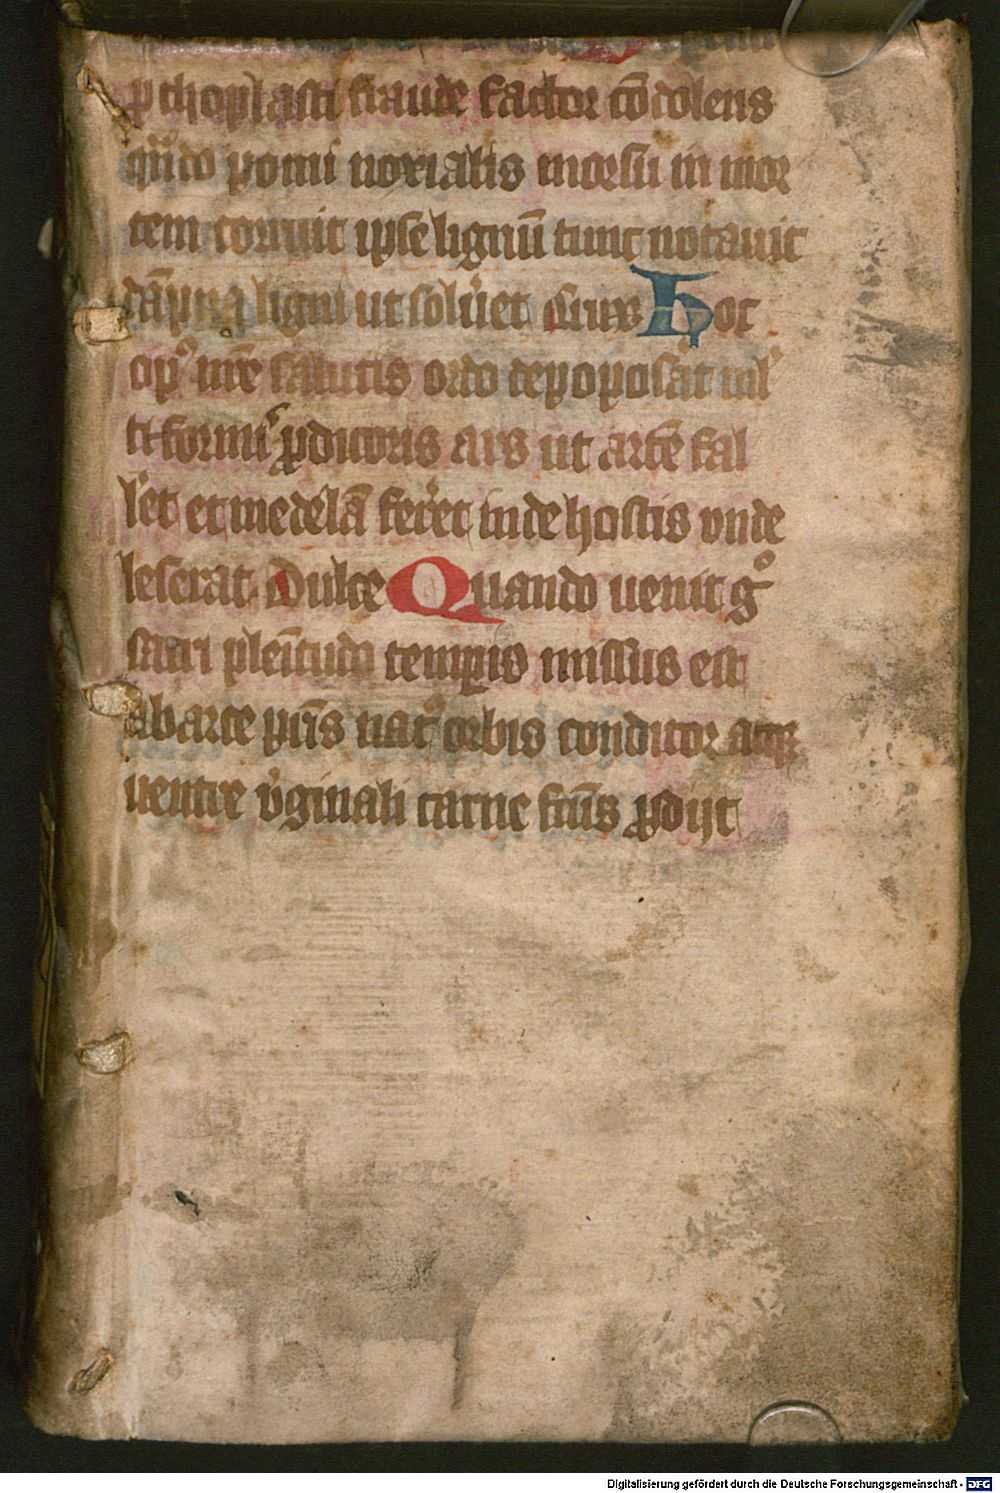 p thoplasti fraude factor cōdolens
qn̄do pomi noxialis morsu in mor
tem corruit ipse lignū tunc notauit
dāpna ligni ut solu̾et Crux Hoc
opꝰ nr̄e salutis ordo depoposc̾at ml̾
ti formiˢ ꝓditoris ars ut artē fal
l̾et et medelā fer̾et inde hostis vnde
leserat. Dulce Quando uenit g̊
sacri plēitudo tempis missus est
ab arce pr̄is natꝰ orbis conditor atqꝫ
uentre v̾ginali carne fcūs ꝓdijt
Digitalisierung gefördert durch die Deutsche Forschungsgemeinschaft - DFG